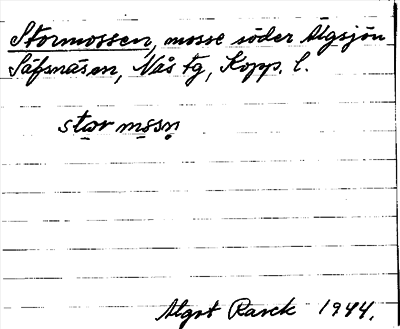 Stormossen, mosse söder Älgsjön
Säfsnäsen, Nås tg, Kopp. l.
stor mssn
Algot Rasck 1944.